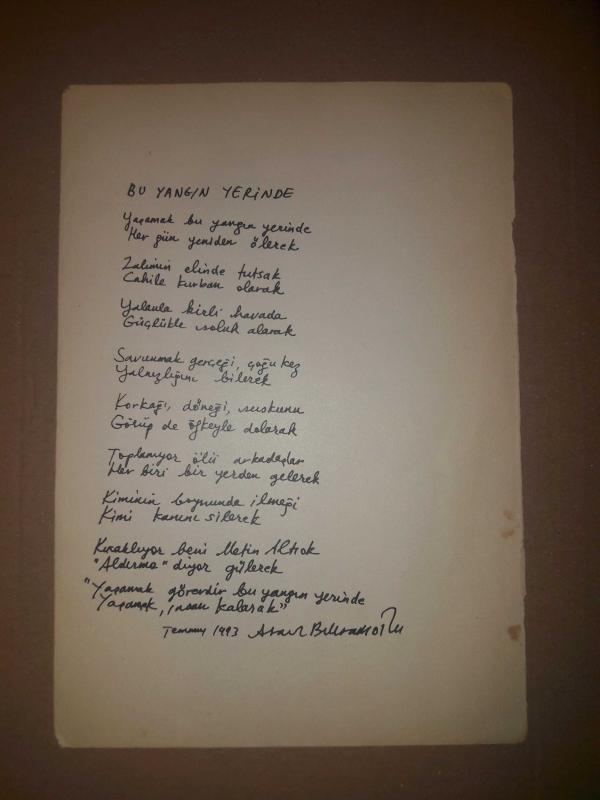 BU YANGIN YERİNDE
Yaşamak bu yangın yerinde
Her gün yeniden ölerek
Zalimin elinde tutsak
Cahile kurban olarak
Yalanla kirli havada
Güçlükle soluk alarak
Savunmak gerçeği, çoğu kez
Yalnızlığını bilerek
Korkağı, döneği, suskunu
Görüp de öfkeyle dolarak
Toplanıyor ölü arkadaşlar
Her biri bir yerden gelerek
Kiminin boynunda ilmeği
Kimi kanını silerek
Kucaklıyor beni Metin Altıok
"Aldırma" diyor gülerek
"Yaşamak görevdir bu yangın yerinde
Yaşamak, insan kalarak"
Temmuz 1993 Ataol Behramoğlu